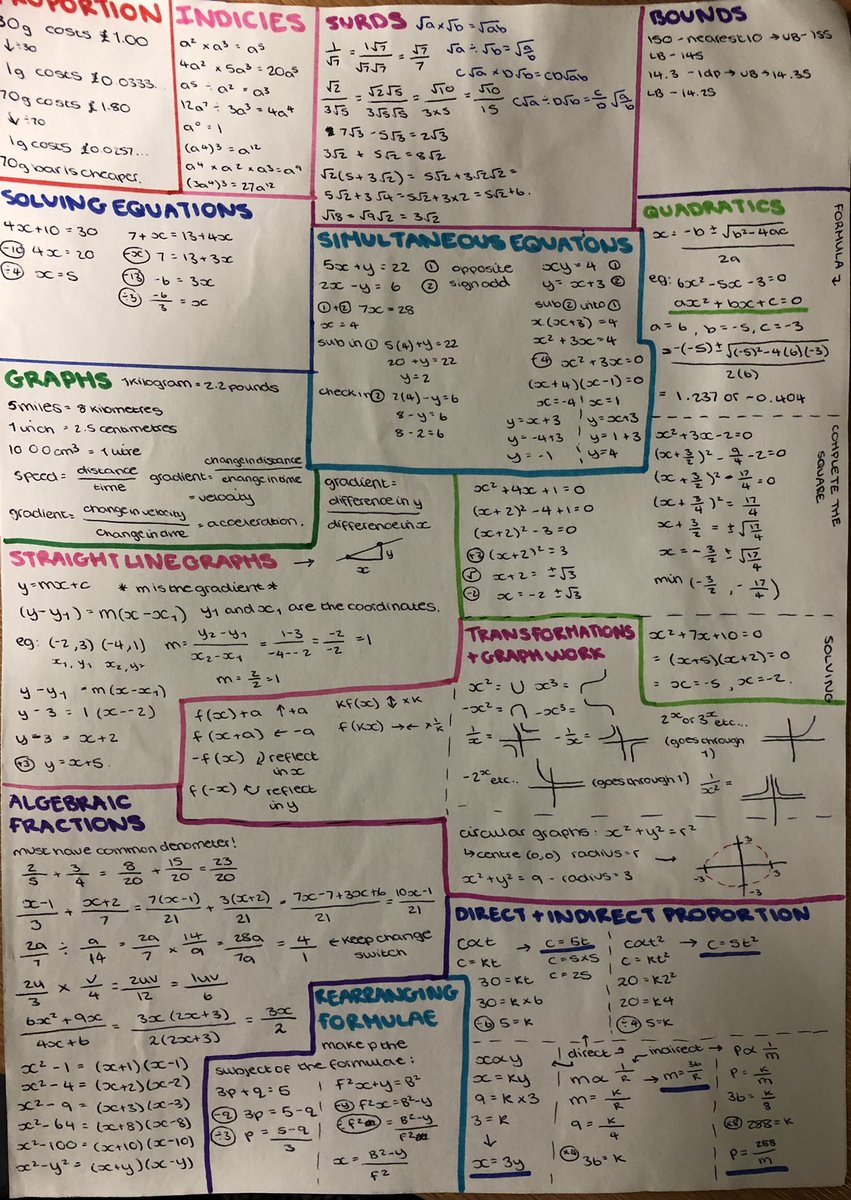 PROPORTION
30g costs £1.00
↓÷30
1g costs £0.0333...
70g costs £1.80
↓÷70
1g costs £0.0257...
70g bar is cheaper.
INDICIES
a² × a³ = a⁵
4a² × 5a³ = 20a⁵
a⁵ ÷ a² = a³
12a⁷ ÷ 3a³ = 4a⁴
a⁰ = 1
(a⁴)³ = a¹²
a⁴ × a² × a³ = a⁹
(3a⁴)³ = 27a¹²
SURDS √a × √b = √ab
1/√7 = 1√7/√7√7 = √7/7 √a ÷ √b = √a/b
c√a × D√b = cD√ab
√2/3√5 = √2√5/3√5√5 = √10/3×5 = √10/15 c√a ÷ D√b = c/D √a/b
7√3 - 5√3 = 2√3
3√2 + 5√2 = 8√2
√2(5 + 3√2) = 5√2 + 3√2√2 =
5√2 + 3√4 = 5√2 + 3×2 = 5√2 + 6.
√18 = √9√2 = 3√2
BOUNDS
150 - nearest 10 → UB - 155
LB - 145
14.3 - 1dp → UB → 14.35
LB - 14.25
SOLVING EQUATIONS
4x + 10 = 30
-10 4x = 20
÷4 x = 5
7 + x = 13 + 4x
-x 7 = 13 + 3x
-13 -6 = 3x
÷3 -6/3 = x
SIMULTANEOUS EQUATONS
5x + y = 22 ① opposite
2x - y = 6 ② sign add
①+② 7x = 28
x = 4
sub in ① 5(4) + y = 22
20 + y = 22
y = 2
check in ② 2(4) - y = 6
8 - y = 6
8 - 2 = 6
xy = 4 ①
y = x + 3 ②
sub ② into ①
x(x + 3) = 4
x² + 3x = 4
-4 x² + 3x = 0
(x + 4)(x - 1) = 0
x = -4 x = 1
y = x + 3 y = x + 3
y = -4 + 3 y = 1 + 3
y = -1 y = 4
QUADRATICS
FORMULA
x = -b ± √b² - 4ac
2a
eg: 6x² - 5x - 3 = 0
ax² + bx + c = 0
a = 6, b = -5, c = -3
= -(-5) ± √(-5)² - 4(6)(-3)
2(6)
= 1.237 or -0.404
COMPLETE THE SQUARE
x² + 3x - 2 = 0
(x + 3/2)² - 9/4 - 2 = 0
(x + 3/2)² - 17/4 = 0
(x + 3/4)² = 17/4
x + 3/2 = ± √17/4
x = -3/2 ± √17/4
min (-3/2, -17/4)
x² + 4x + 1 = 0
(x + 2)² - 4 + 1 = 0
(x + 2)² - 3 = 0
+3 (x + 2)² = 3
√ x + 2 = ±√3
-2 x = -2 ± √3
SOLVING
x² + 7x + 10 = 0
= (x + 5)(x + 2) = 0
= x = -5, x = -2.
GRAPHS 1 kilogram = 2.2 pounds
5 miles = 8 kilometres
1 inch = 2.5 centimetres
1000cm³ = 1 litre
speed = distance/time gradient = change in distance/change in time = velocity
gradient = change in velocity/change in time = acceleration.
gradient =
difference in y
difference in x
y
x
STRAIGHT LINE GRAPHS →
y = mx + c * m is the gradient *
(y - y₁) = m(x - x₁) y₁ and x₁ are the coordinates.
eg: (-2, 3) (-4, 1) m = y₂ - y₁/x₂ - x₁ = 1-3/-4--2 = -2/-2 = 1
x₁, y₁ x₂, y₂
m = 2/2 = 1
y - y₁ = m(x - x₁)
y - 3 = 1(x - -2)
y - 3 = x + 2
+3 y = x + 5.
f(x) + a ↑ +a
f(x + a) ← -a
-f(x) reflect in x
f(-x) reflect in y
Kf(x) ↕ × K
f(Kx) → ← × 1/K
TRANSFORMATIONS
+ GRAPH WORK
x² = x³ =
-x² = -x³ =
1/x = -1/x =
2ˣ or 3ˣ etc...
(goes through 1)
-2ˣ etc.. (goes through 1) 1/x² =
circular graphs: x² + y² = r²
↳ centre (0,0) radius = r →
x² + y² = 9 - radius = 3
3
-3 3
-3
ALGEBRAIC
FRACTIONS
must have common denometer!
2/5 + 3/4 = 8/20 + 15/20 = 23/20
x-1/3 + x+2/7 = 7(x-1)/21 + 3(x+2)/21 = 7x-7+3x+6/21 = 10x-1/21
2a/7 ÷ a/14 = 2a/7 × 14/a = 28a/7a = 4/1 ← keep change switch
2u/3 × v/4 = 2uv/12 = 1uv/6
6x² + 9x/4x + 6 = 3x(2x+3)/2(2x+3) = 3x/2
x² - 1 = (x+1)(x-1)
x² - 4 = (x+2)(x-2)
x² - 9 = (x+3)(x-3)
x² - 64 = (x+8)(x-8)
x² - 100 = (x+10)(x-10)
x² - y² = (x+y)(x-y)
REARRANGING
FORMULAE
make p the
subject of the formulae:
3p + q = 5
-q 3p = 5 - q
÷3 p = 5-q/3
f²x + y = B²
-y f²x = B² - y
÷f² = B²-y/f²
x = B²-y/f²
DIRECT + INDIRECT PROPORTION
c∝t → c = 5t
c = Kt c = 5×5
30 = Kt c = 25
30 = K × 6
÷6 5 = K
c∝t² → c = 5t²
c = Kt²
20 = K2²
20 = K4
÷4 5 = K
x∝y
x = Ky
9 = K × 3
3 = K
↓
x = 3y
direct indirect
m∝ 1/R → m = 36/R
m = K/R
9 = K/4
×4 36 = K
p∝ 1/m
p = K/m
36 = K/8
×8 288 = K
p = 288/m